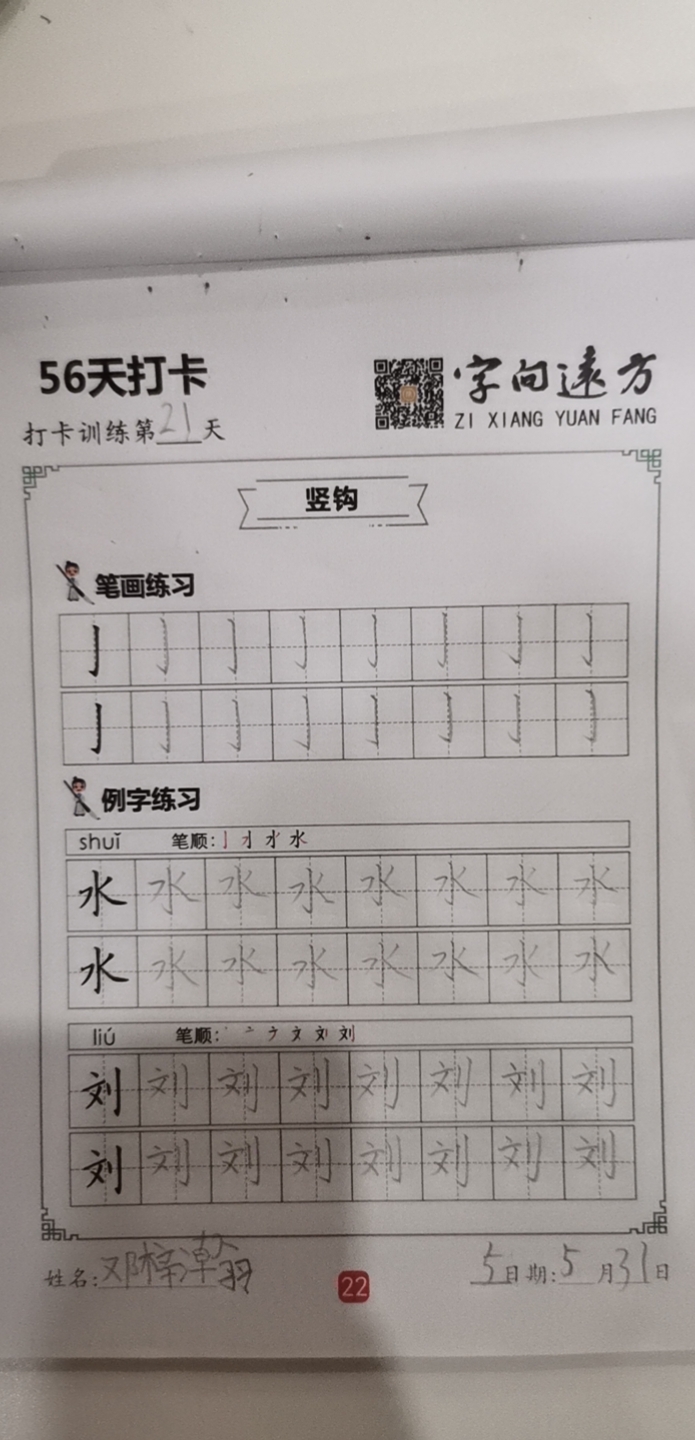 56天打卡
字向遠方
打卡训练第21天
ZI XIANG YUAN FANG
竖钩
笔画练习
亅亅亅亅亅亅亅亅
亅亅亅亅亅亅亅亅
例字练习
shuǐ 笔顺: 水
水水水水水水水水
水水水水水水水水
liú 笔顺: 丶 亠 ナ 文 刘
刘刘刘刘刘刘刘刘
刘刘刘刘刘刘刘刘
姓名:邓梓瀚 22 5日期:5月31日